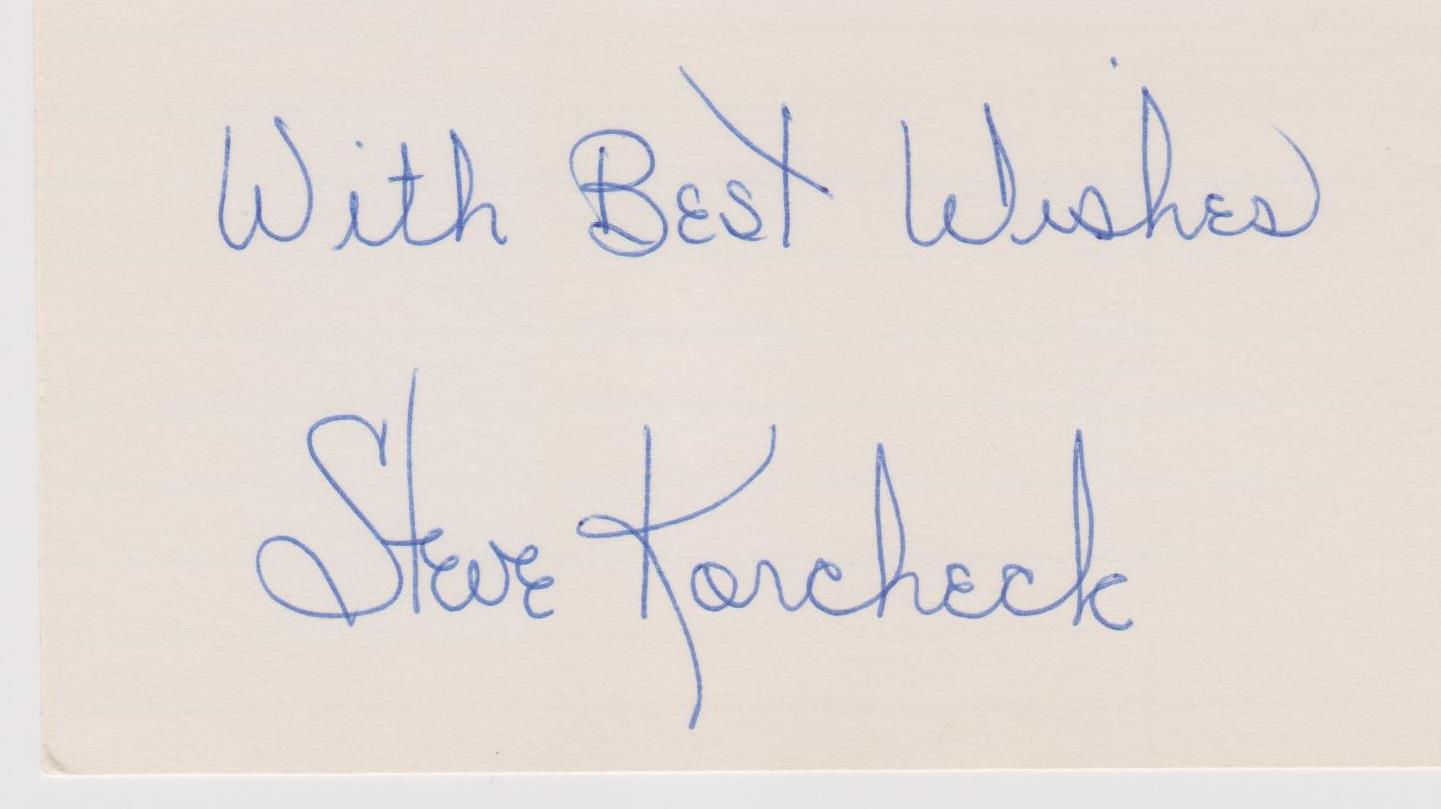 With Best Wishes
Steve Korcheck